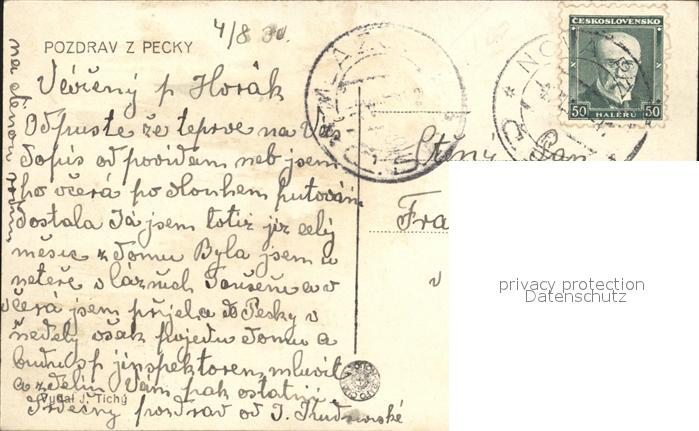 4/8 30.
POZDRAV Z PECKY
Vážený p Horák
Odpuste že teprve na Váš
dopis odpovídám neb jsem
ho včera po dlouhem putování
dostala Já jsem totiž již celý
měsíc z domu Byla jsem u
neteře v lázních Toušenu a v
včera jsem přijela do Pecky v
neděly však pojedu domu a
budu s p jinspektorem mluvit
a zdelím Vám pak ostatní
Srdečný pozdrav od J.
Vydal J. Tichý
ČESKOSLOVENSKO
50 HALÉŘŮ 50
NOV
Ctěný Pan
Fra
v
privacy protection
Datenschutz